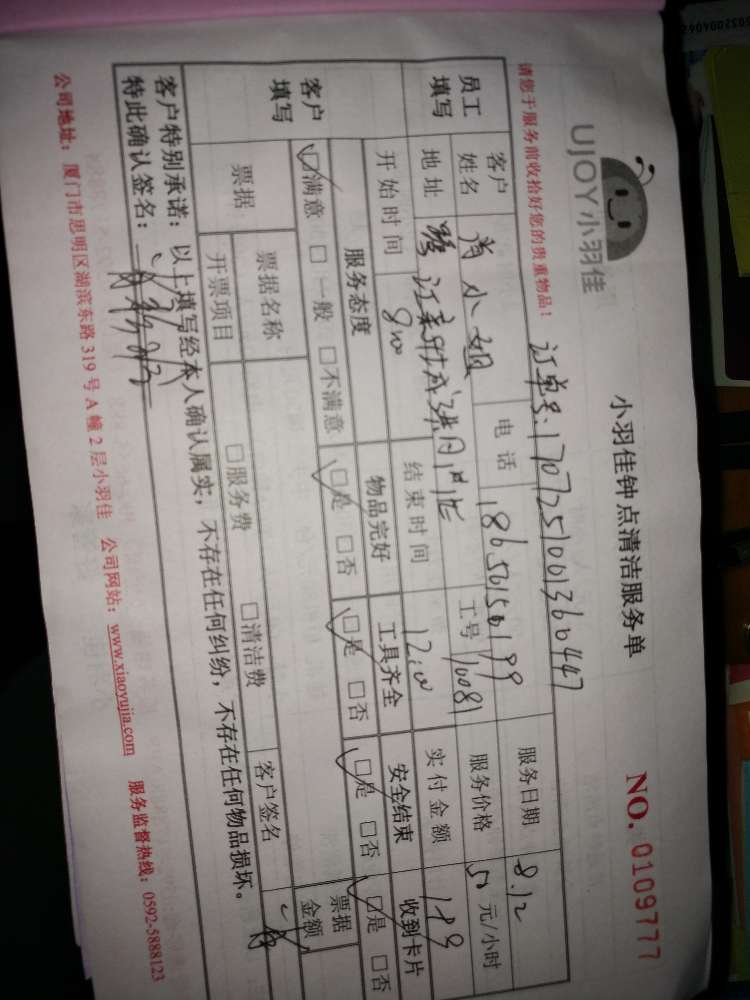 UJOY小羽佳
小羽佳钟点清洁服务单
NO. 0109777
请您于服务前收拾好您的贵重物品！
订单号:1707251001360447
员工填写
客户 小姐 电话 18650150199 服务日期 8.12
姓名 工号 10081 服务价格 50 元/小时
地址
开始时间 8:00 结束时间 12:00 实付金额 189
客户填写
服务态度 物品完好 工具齐全 安全结束 收到卡片
☑满意 □一般 □不满意 ☑是 □否 ☑是 □否 ☑是 □否 ☑是 □否
票据 票据名称 □服务费 □清洁费 客户签名 票据金额
开票项目
客户特别承诺：以上填写经本人确认属实，不存在任何纠纷，不存在任何物品损坏。
特此确认签名：
公司地址：厦门市思明区湖滨东路 319 号 A 幢 2 层小羽佳 公司网站：www.xiaoyujia.com 服务监督热线：0592-5888123